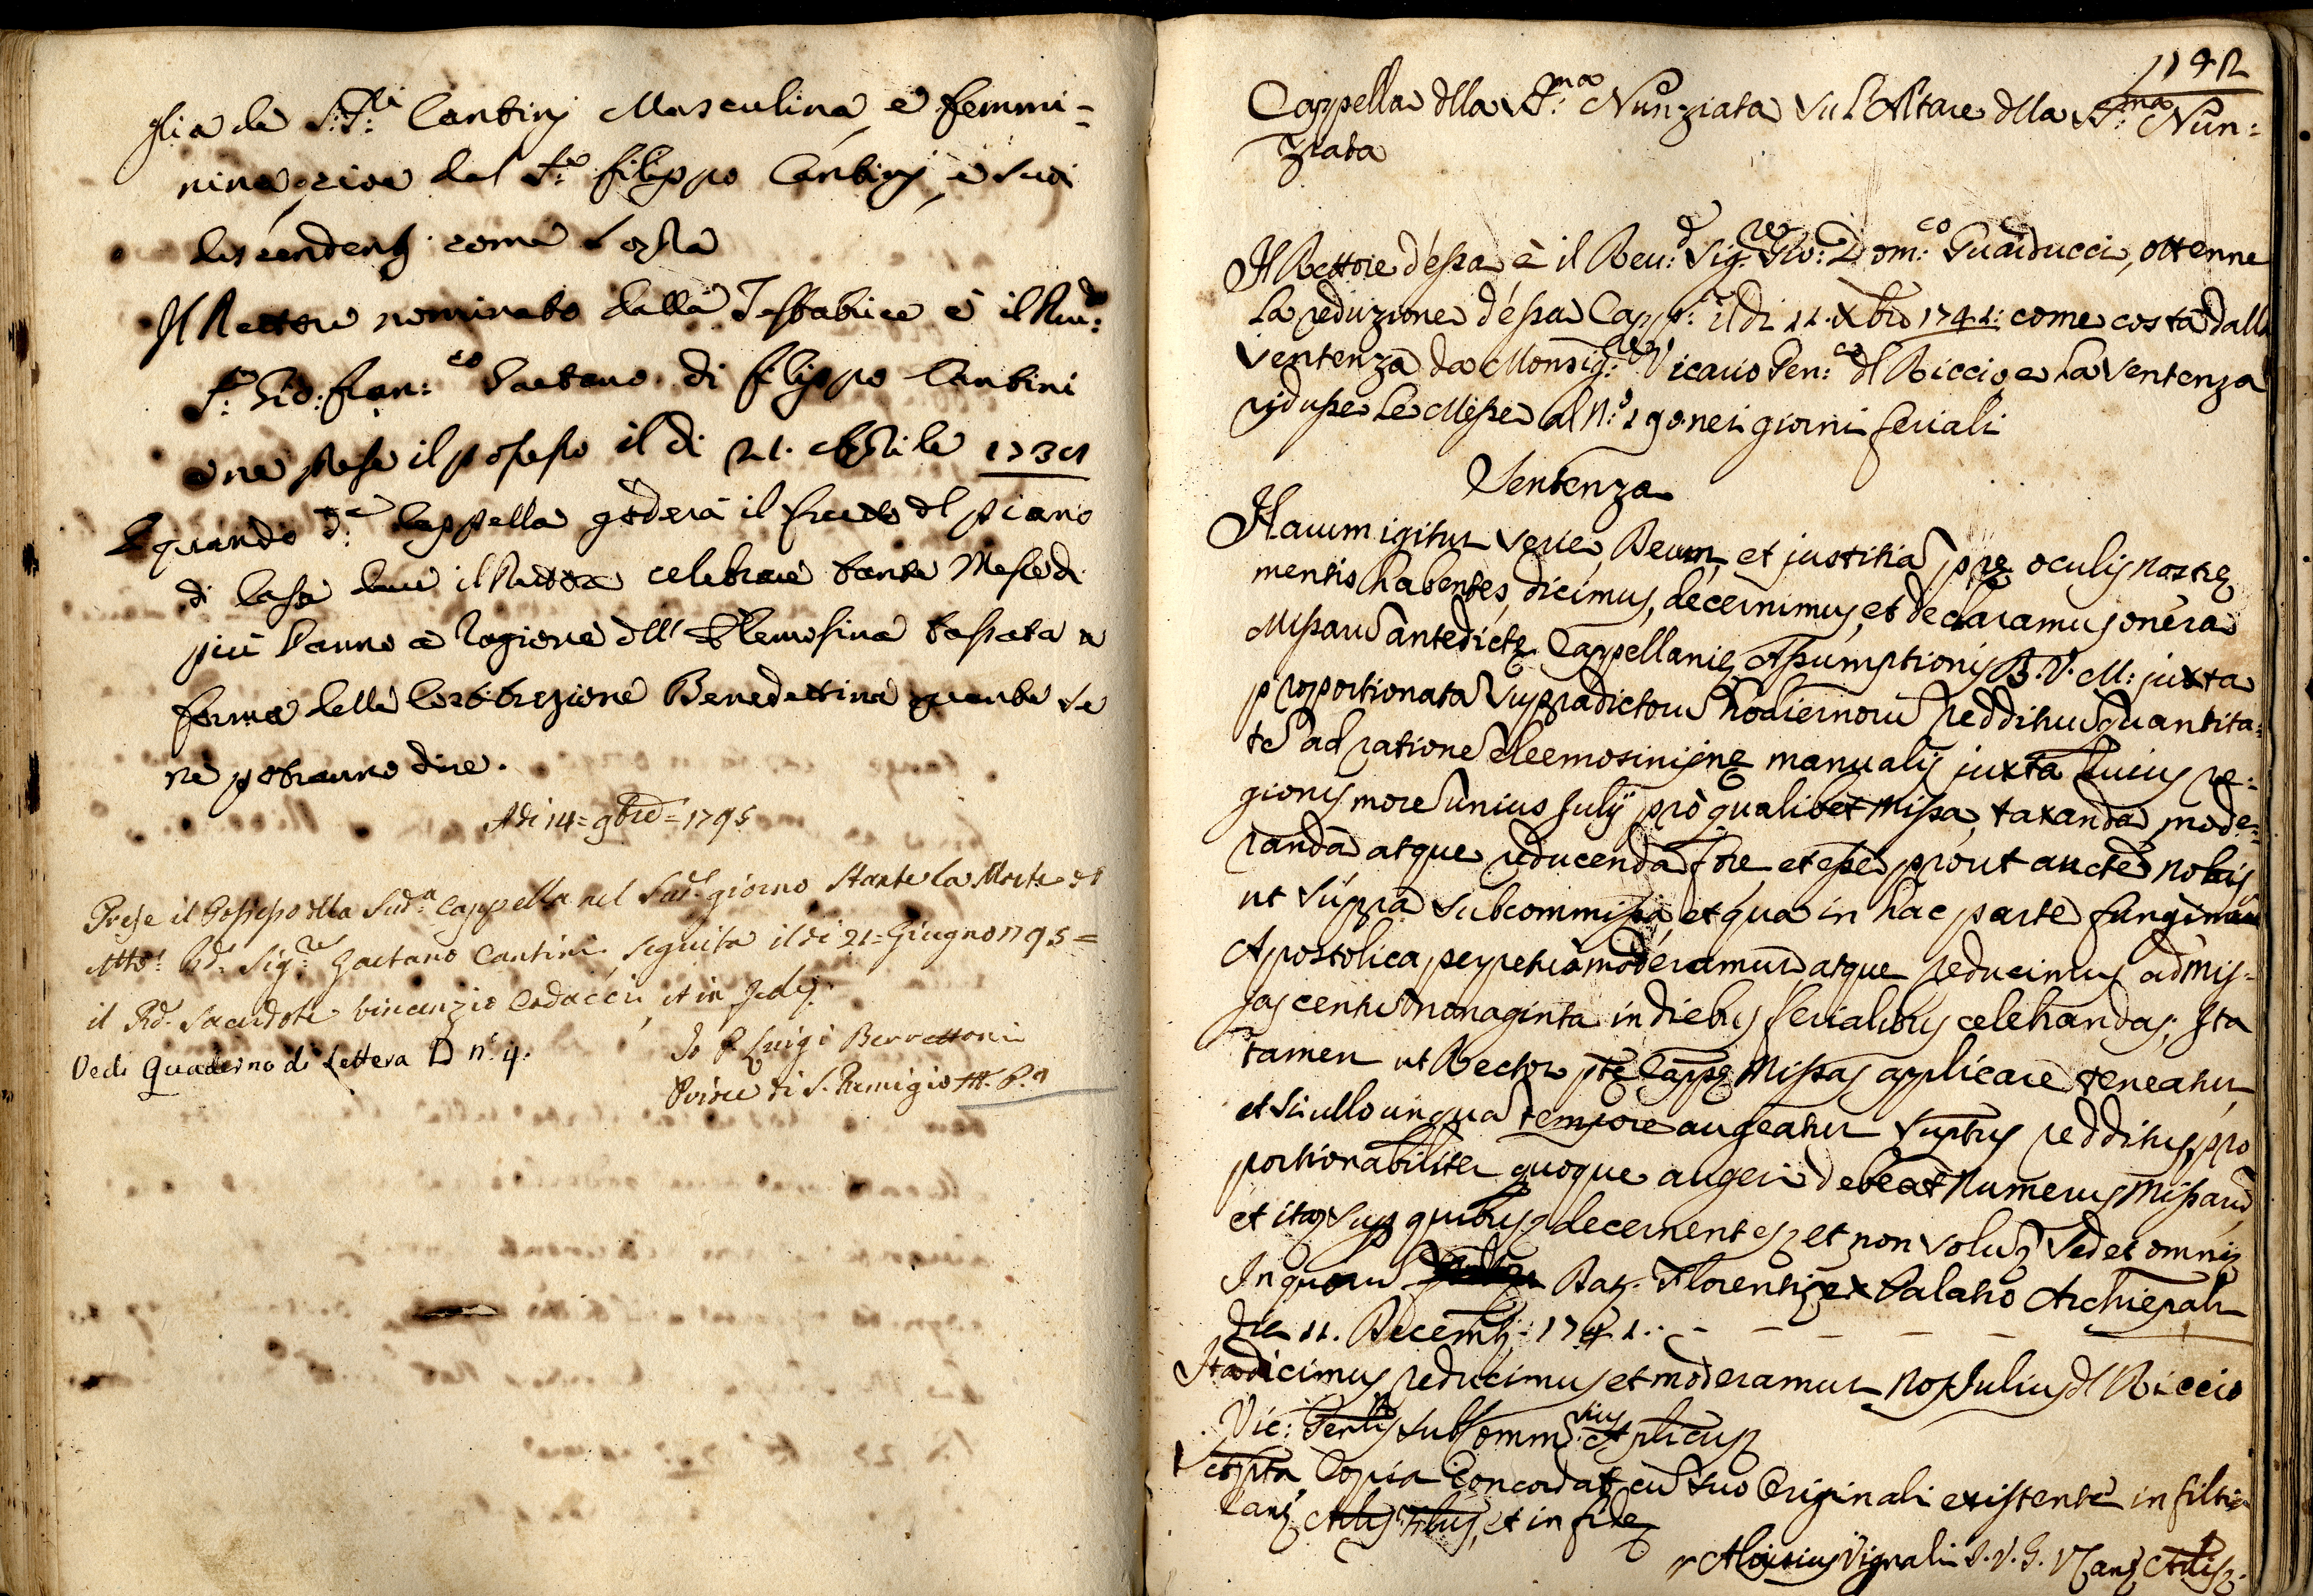 glia de S.ri Cantinj Masculina, e femmi-
nina, cioè del S.e filippo Cantinj, e suoi
descendenti come Costa
Il Rettore nominato dalla Testatrice è il Reu:do
S.e Gio: Fran:co Gaetano di filippo Cantini
e ne prese il possesso il di 21. Aprile
E quando d.a Cappella goderà il frutto dl piano
di Casa deve il Rettore celebrare tante Messe di
più l'anno a ragione dell' Elemosina tassata a
forma della Costituzione Benedettina quante se
ne potranno dire.
Adi 14= 9bre = 1795
Prese il Possesso dlla Sud.a Cappella nel Sud.o giorno Stante la Morte dl
Mto. Rd. Sig.re Gaetano Cantini seguita il di 21= Giugno 1795=
il Rd. Sacerdote Vincenzio Codacci, et in fede
Io P. Luigi Berrettoni
Priore di S. Remigio M. P.a
Vedi Quaderno di Lettera D n.o 4.
Cappella dlla SS.ma Nunziata su l'Altare dlla SS.ma Nun:
ziata
Il Rettore d'essa è il Reu:d Sig.re Gio: Dom:co Guarducci, ottenne
la reduzione d'essa Capp.a il di 11. Xbre 1741: come costa dalla
sentenza da Monsig:re Vicario Gen: dl Riccio, e la sentenza
ridusse le Messe al N.o 190. nei giorni feriali
Sentenza
Harum igitur serie, Deum, et justitia pre oculis nostre
mentis habentes, dicimus, decernimus, et declaramus onera
Missaru antedicte Cappellanie Assumptionis B. V. M: juxta
proportionata supradictoru hodiernoru reddituu quantita:
te ad ratione eleemosinis manualis juxta huius re:
gionis more unius Julij pro qualibet missa, taxanda mode:
randa atque reducenda fore et esse prout aucte nobis
ut supra subcommissa, et qua in hac parte fungimur
Apostolica, perpetuò moderamur, atque reducimus ad Mis-
sas centu nonaginta in diebus ferialibus celebrandas; Ita
tamen ut Rector pte Cappe Missas applicare teneatur
et si ullo unqua tempore augeatur suptus redditus, pro
portionabiliter quoque augeri debeat numerus Missaru
et ita sup quibus decernentes, et non solu, sed et omni
In quoru Dat. Florentie ex Palatio Archiepali
die 11. Decemb: 1741. - - - - -
Ita dicimus reducimus et moderamur nos Julius dl Riccio
Vic: Genlis SubComm:rius Aplicus
et pta Copia Concordat cu suo Originali existente in filtia
Canc et in fide
Aloisius Vignali